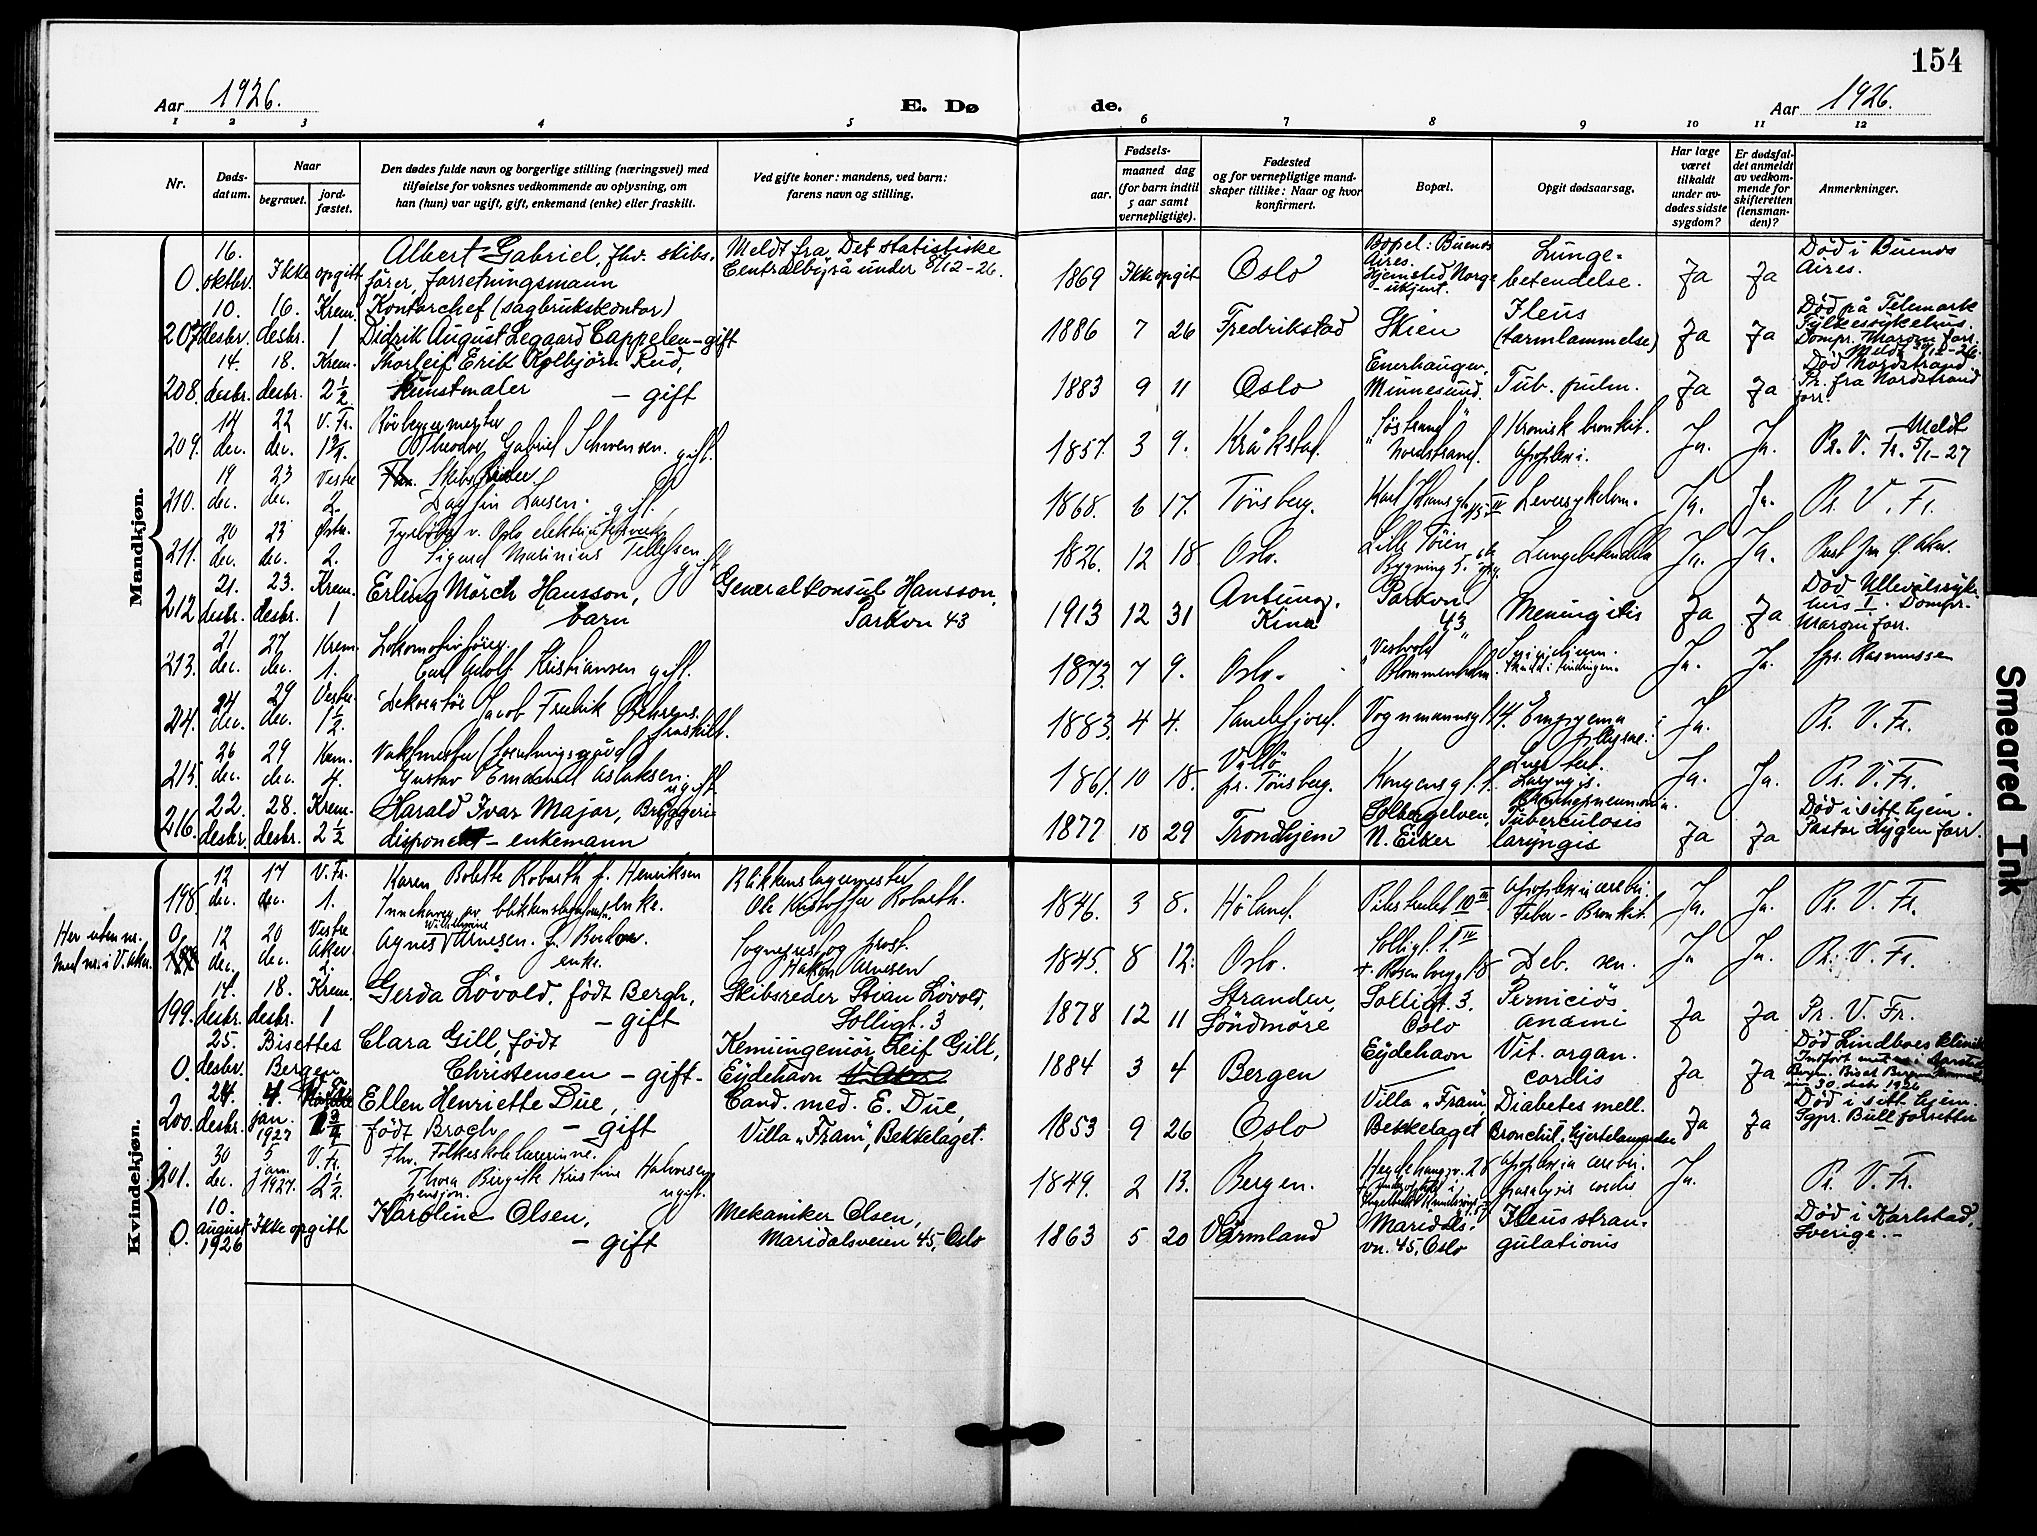 154
Aar 1926. E. Dø de. Aar 1926.
1 2 3 4 5 6 7 8 9 10 11 12
Nr.
Døds-
datum.
Naar
begravet.
jord-
fæstet.
Den dødes fulde navn og borgerlige stilling (næringsvei) med
tilføielse for voksnes vedkommende av oplysning, om
han (hun) var ugift, gift, enkemand (enke) eller fraskilt.
Ved gifte koner: mandens, ved barn:
farens navn og stilling.
Fødsels-
aar.
maaned dag
(for barn indtil
5 aar samt
vernepligtige).
Fødested
og for vernepligtige mand-
skaper tillike: Naar og hvor
konfirmert.
Bopæl.
Opgit dødsaarsag.
Har læge
været
tilkaldt
under av-
dødes sidste
sygdom?
Er dødsfal-
det anmeldt
av vedkom-
mende for
skifteretten
(lensman-
den)?
Anmerkninger.
Mandkjøn.
0. 16. oktbr. Ikke opgitt
Albert Gabriel, fhv. skibs-
fører, forretningsmann
Meldt fra Det statistiske
Centralbyrå under 8/12-26.
1869 Ikke opgit Oslo
Bopel: Buenos
Aires.
Hjemsted Norge
- ukjent.
Lunge-
betendelse.
Ja Ja
Død i Buenos
Aires.
207 10. desbr. 16. desbr. Krem. 1
Kontorchef (sagbrukskontor)
Didrik August Legaard Cappelen - gift
1886 7 26 Fredrikstad Skien
Ileus
(tarmlammelse)
Ja Ja
Død på Telemark
Fylkessykehus.
208. 14. desbr. 18. desbr. Krem. 2 1/2
Thorleif Erik Kolbjörn Rud,
Kunstmaler - gift
1883 9 11 Oslo
Enerhaugen,
Minnesund.
Tub. pulm.
Ja Ja
Død Nordstrand
Pr. fra Nordstrand
forr.
209. 14 dec. 22 dec. V. Fr.
Theodor Gabriel gift.
1857. 3 9. Kråkstad.
Nordstrand.
Kronisk bronkit.
Apoplexi.
Ja. Ja.
Meldt
Pr. V. Fr. 5/1-27
210. 19 dec. 23 dec. Vestre 2.
Dagfin Larsen. gift.
1868. 6 17. Tönsberg.
Leversykdom.
Ja. Ja. Pr. V. Fr.
211. 20 dec. 23 dec. 2.
Sigurd Marinius Tellefsen. gift
1826. 12 18. Oslo.
Bygning 5.
Lungebetendelse
Ja. Ja.
212 21. desbr. 23. desbr. Krem. 1
Erling Mörch Hansson,
barn
Generalkonsul Hansson,
Parkvn 43
1913 12 31 Antung.
Kina
Parkvn.
43
Meningitis
Ja Ja
Død Ullevålssyke
hus I. Dompr.
Maroni forr.
213. 21 dec. 27 dec. Krem. 1.
Carl Adolf Kristiansen gift.
1873. 7 9. Oslo.
Blommenholm.
Ja. Ja.
214. 24 dec. 29 dec. Vestre 1 1/2.
Dekoratør Jacob Fredrik Behrens.
fraskilt.
1883. 4 4. Sandefjord.
Ja. Pr. V. Fr.
215. 26 dec. 29 dec. Krem. 4.
Gustav Emanuel Aslaksen.
ugift
1861. 10 18.
pr. Tönsberg.
Ja. Ja. Pr. V. Fr.
216. 22. desbr. 28. desbr. Krem. 2 1/2
Harald Ivar Major, Bryggeri
disponent - enkemann
1877 10 29 Trondhjem
Solbergelven,
N. Eiker
Tuberculosis
laryngis
Ja Ja
Død i sitt hjem.
Pastor Hygen forr.
Kvindekjøn.
198. 12 dec. 17 dec. V. Fr. 1.
Karen Bolette Robarth f. Henriksen
enke.
Blikkenslagermester
Ole Kristoffer Robarth.
1846. 3 8. Höland.
Feber - Bronkit.
Ja. Ja. Pr. V. Fr.
Her uten nr.
med nr. i V. Aker.
0. 12 dec. 20 dec. Vestre Aker 2.
Wilhelmine
Agnes Arnesen. f.
enke.
Sogneprest og prost.
Håkon Arnesen
1845. 8 12. Oslo.
Deb. sen.
Ja Ja. Pr. V. Fr.
199. 14. desbr. 18. desbr. Krem. 1
Gerda Lövold, født Bergh,
- gift
Skibsreder Stian Lövold,
Solligt. 3
1878 12 11 Stranden,
Söndmöre
Solligt. 3.
Oslo
Perniciös
anämi
Ja Ja Pr. V. Fr.
0. 25. desbr. Bisettes
Bergen
Clara Gill, født
Christensen - gift -
Kemiingeniör Leif Gill,
Eydehavn
1884 3 4 Bergen Eydehavn
Vit. organ.
cordis
Ja Ja
Død Lindboes klinikk
200. 24. desbr. 4. jan. 1927
Ellen Henriette Due,
født Broch - gift
Cand. med. E. Due,
Villa "Fram", Bekkelaget.
1853 9 26 Oslo
Villa "Fram,
Bekkelaget
Diabetes mell.
Bronchit,
Ja Ja
Død i sitt hjem.
Sgpr. Bull forretter
201. 30 dec. 5 jan. 1927. V. Fr. 2 1/2.
Fhv. Folkeskolelærerinne.
Thora Birgith Kristine Halvorsen
pensjon. ugift.
1849. 2 13. Bergen.
paralysis cordis
Ja. Pr. V. Fr.
0. 10. august 1926 Ikke opgitt
Karoline Olsen,
- gift
Mekaniker Olsen,
Maridalsveien 45, Oslo
1863 5 20 Värmland
Maridals-
vn. 45, Oslo
Ileus stran-
gulationis
Død i Karlstad,
Sverige. -
Smeared Ink